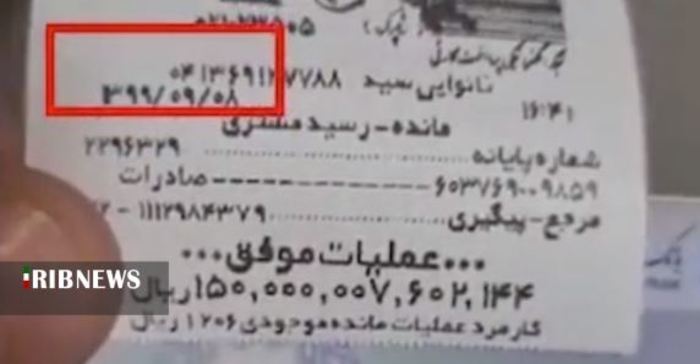 نانوایی سید ۰۴۱۳۶۹۱۲۷۷۸۸
۱۶:۴۱ ۱۳۹۹/۰۹/۰۸
مانده-رسید مشتری
شماره پایانه ........ ۲۲۹۶۳۲۹
۶۰۳۷۶۹۰۰۹۸۵۹ ---------- صادرات
مرجع-پیگیری ........ ۱۱۱۲۹۸۴۳۷۹ -
...عملیات موفق...
۱۵۰,۰۰۰,۰۰۷,۶۰۲,۱۴۴ ریال
کارمزد عملیات مانده موجودی ۱۲۰۶ ریال
RIBNEWS